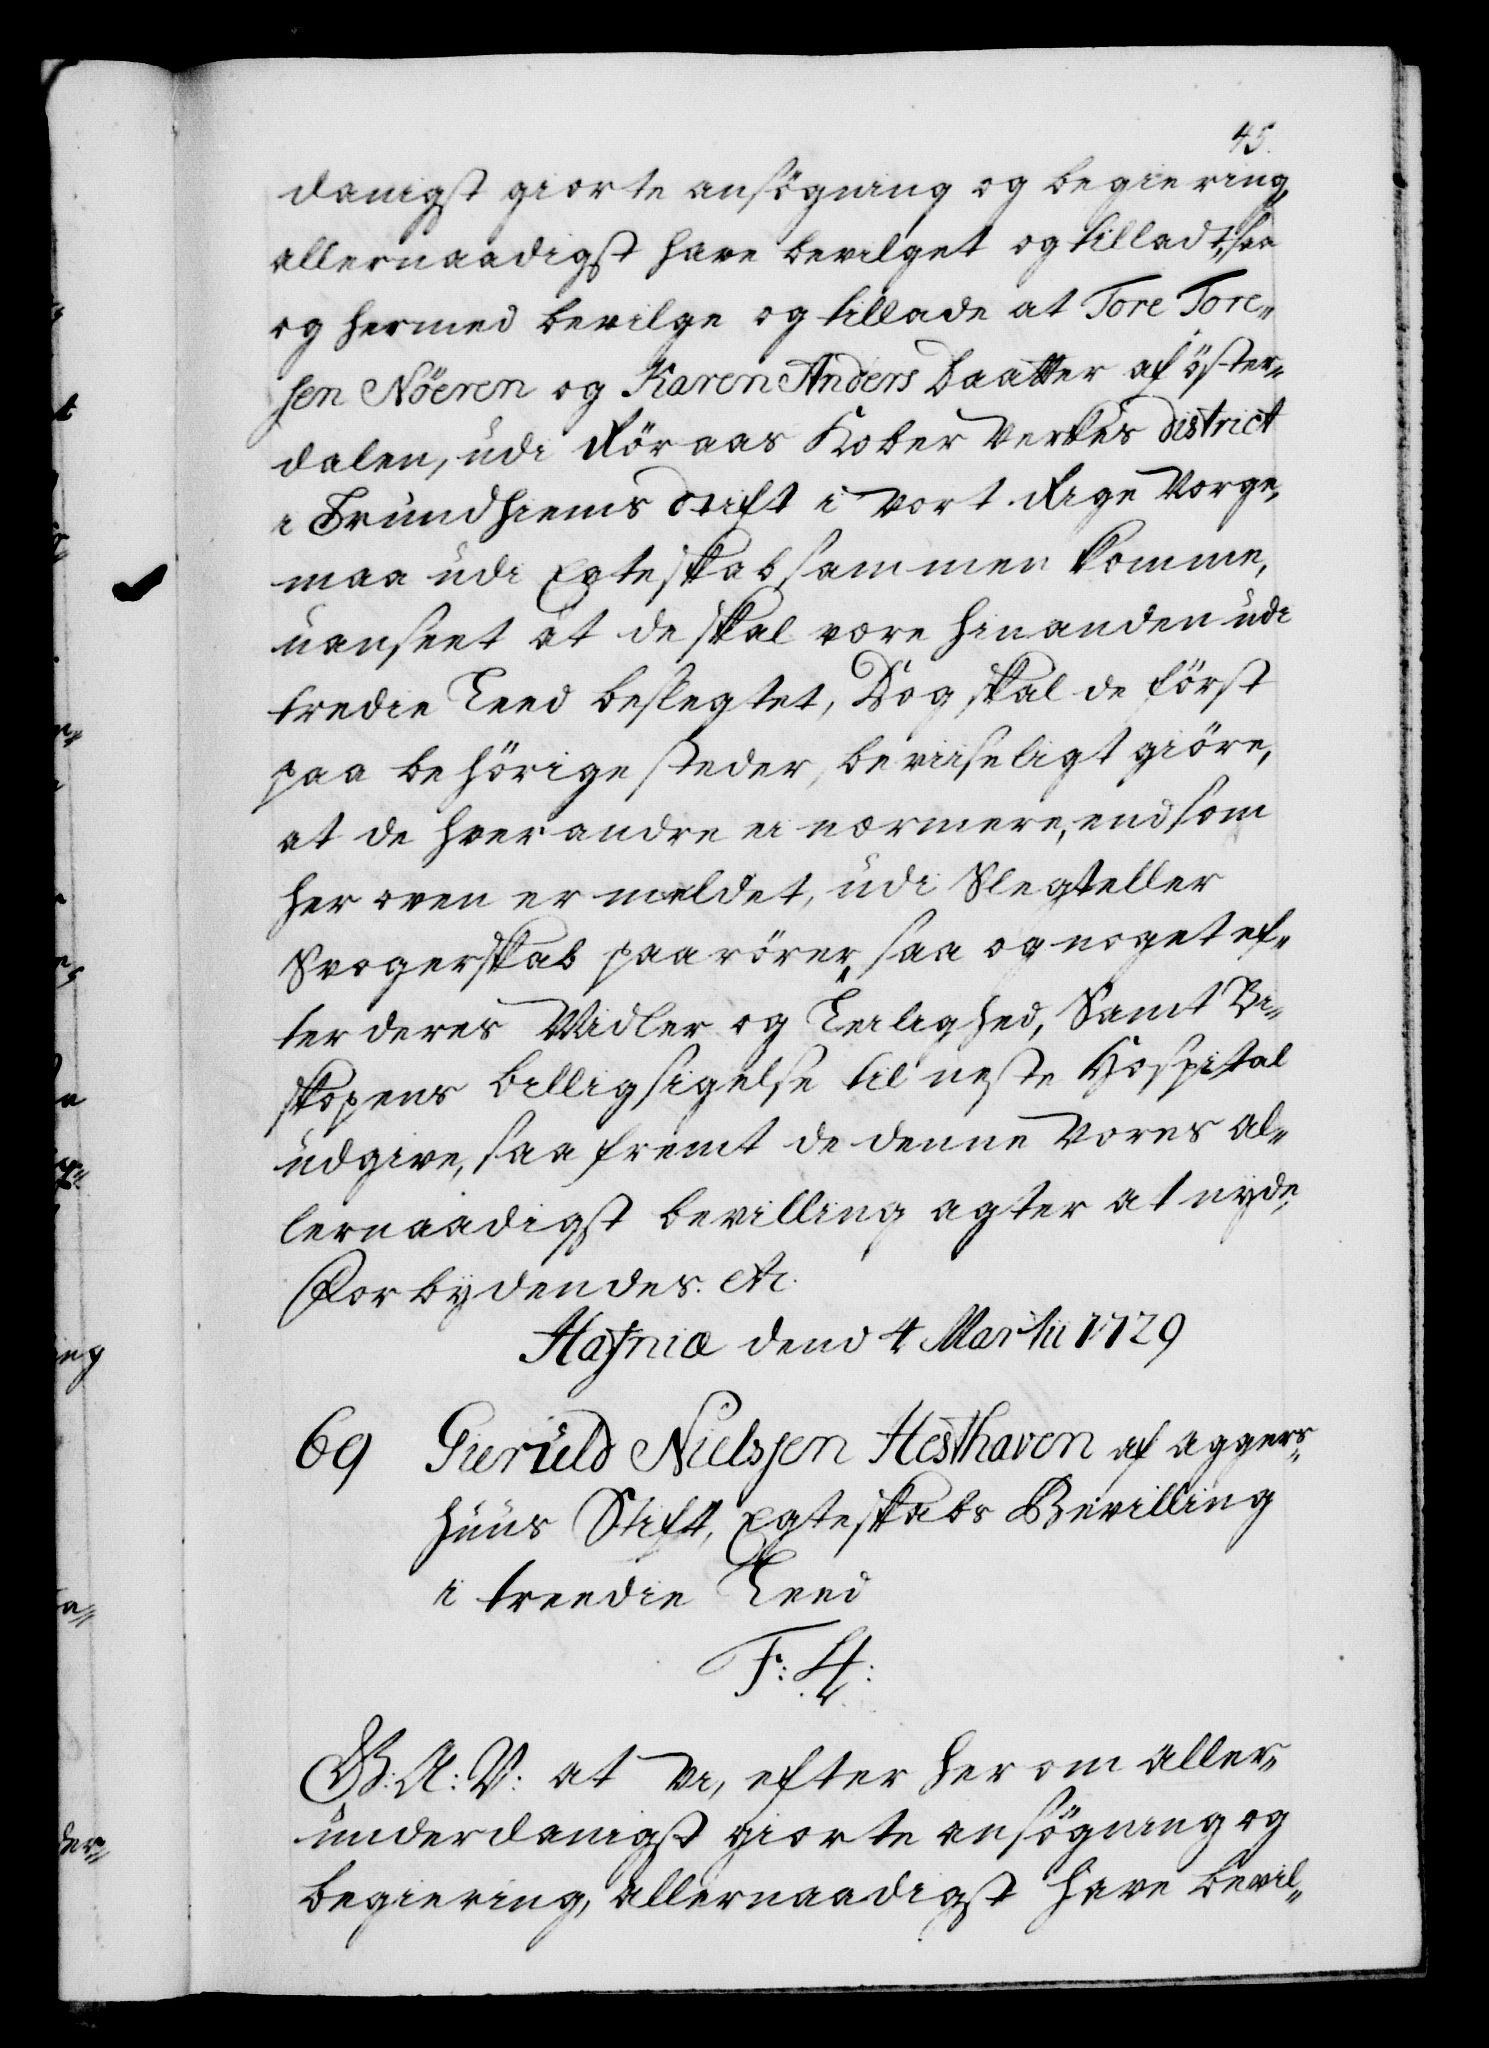 45.
danigst giorte ansögning og begiering,
allernaadigst have bevilget og tilladt, saa
og hermed bevilge og tillade at Tore Tore-
sen Nöeren og Karen Anders Daatter af öster-
dalen, udi Röraas Kober Verkes District
i Trundhiems Stift i Vort Rige Norge,
maa udi Egteskab sammen komme,
uanseet at de skal være hinanden udi
tredie Leed beslegtet, Dog skal de först
paa behörige steder, beviiseligt giöre,
at de hverandre ei nærmere, end som
her oven er meldet, udi Slegt eller
Svogerskab paarörer, saa og noget ef-
ter deres Midler og Leilighed, Samt Bi-
skopens billigsigelse til neste Hospital
udgive, saa fremt de denne Vores al-
lernaadigst bevilling agter at nyde,
Forbydendes. etc.
Hafniæ dend 4 Martii 1729
69 Gieruld Nielssen Hesthaven af Aggers-
huus Stift, Egteskabs Bevilling
i treedie Leed
F: 4:
G: A: V: at Vi, efter herom aller-
underdanigst giorte ansögning og
begiering, allernaadigst have bevil-